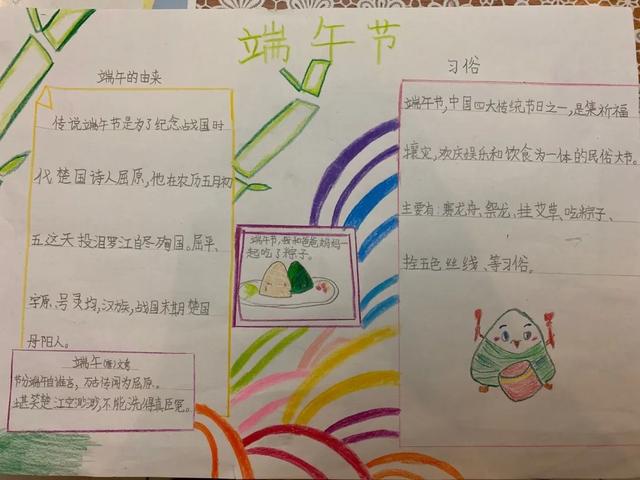 端午节
端午的由来
传说端午节是为了纪念战国时
代楚国诗人屈原,他在农历五月初
五这天投汨罗江自尽殉国。屈平、
字原、号灵均,汉族,战国末期楚国
丹阳人。
端午(唐)文秀
节分端午自谁言,万古传闻为屈原。
堪笑楚江空渺渺,不能洗得直臣冤。
端午节,我和爸爸,妈妈一
起吃了粽子。
习俗
端午节,中国四大传统节日之一,是集祈福
攘灾,欢庆娱乐和饮食为一体的民俗大节。
主要有:赛龙舟、祭龙、挂艾草、吃粽子、
拴五色丝线、等习俗。